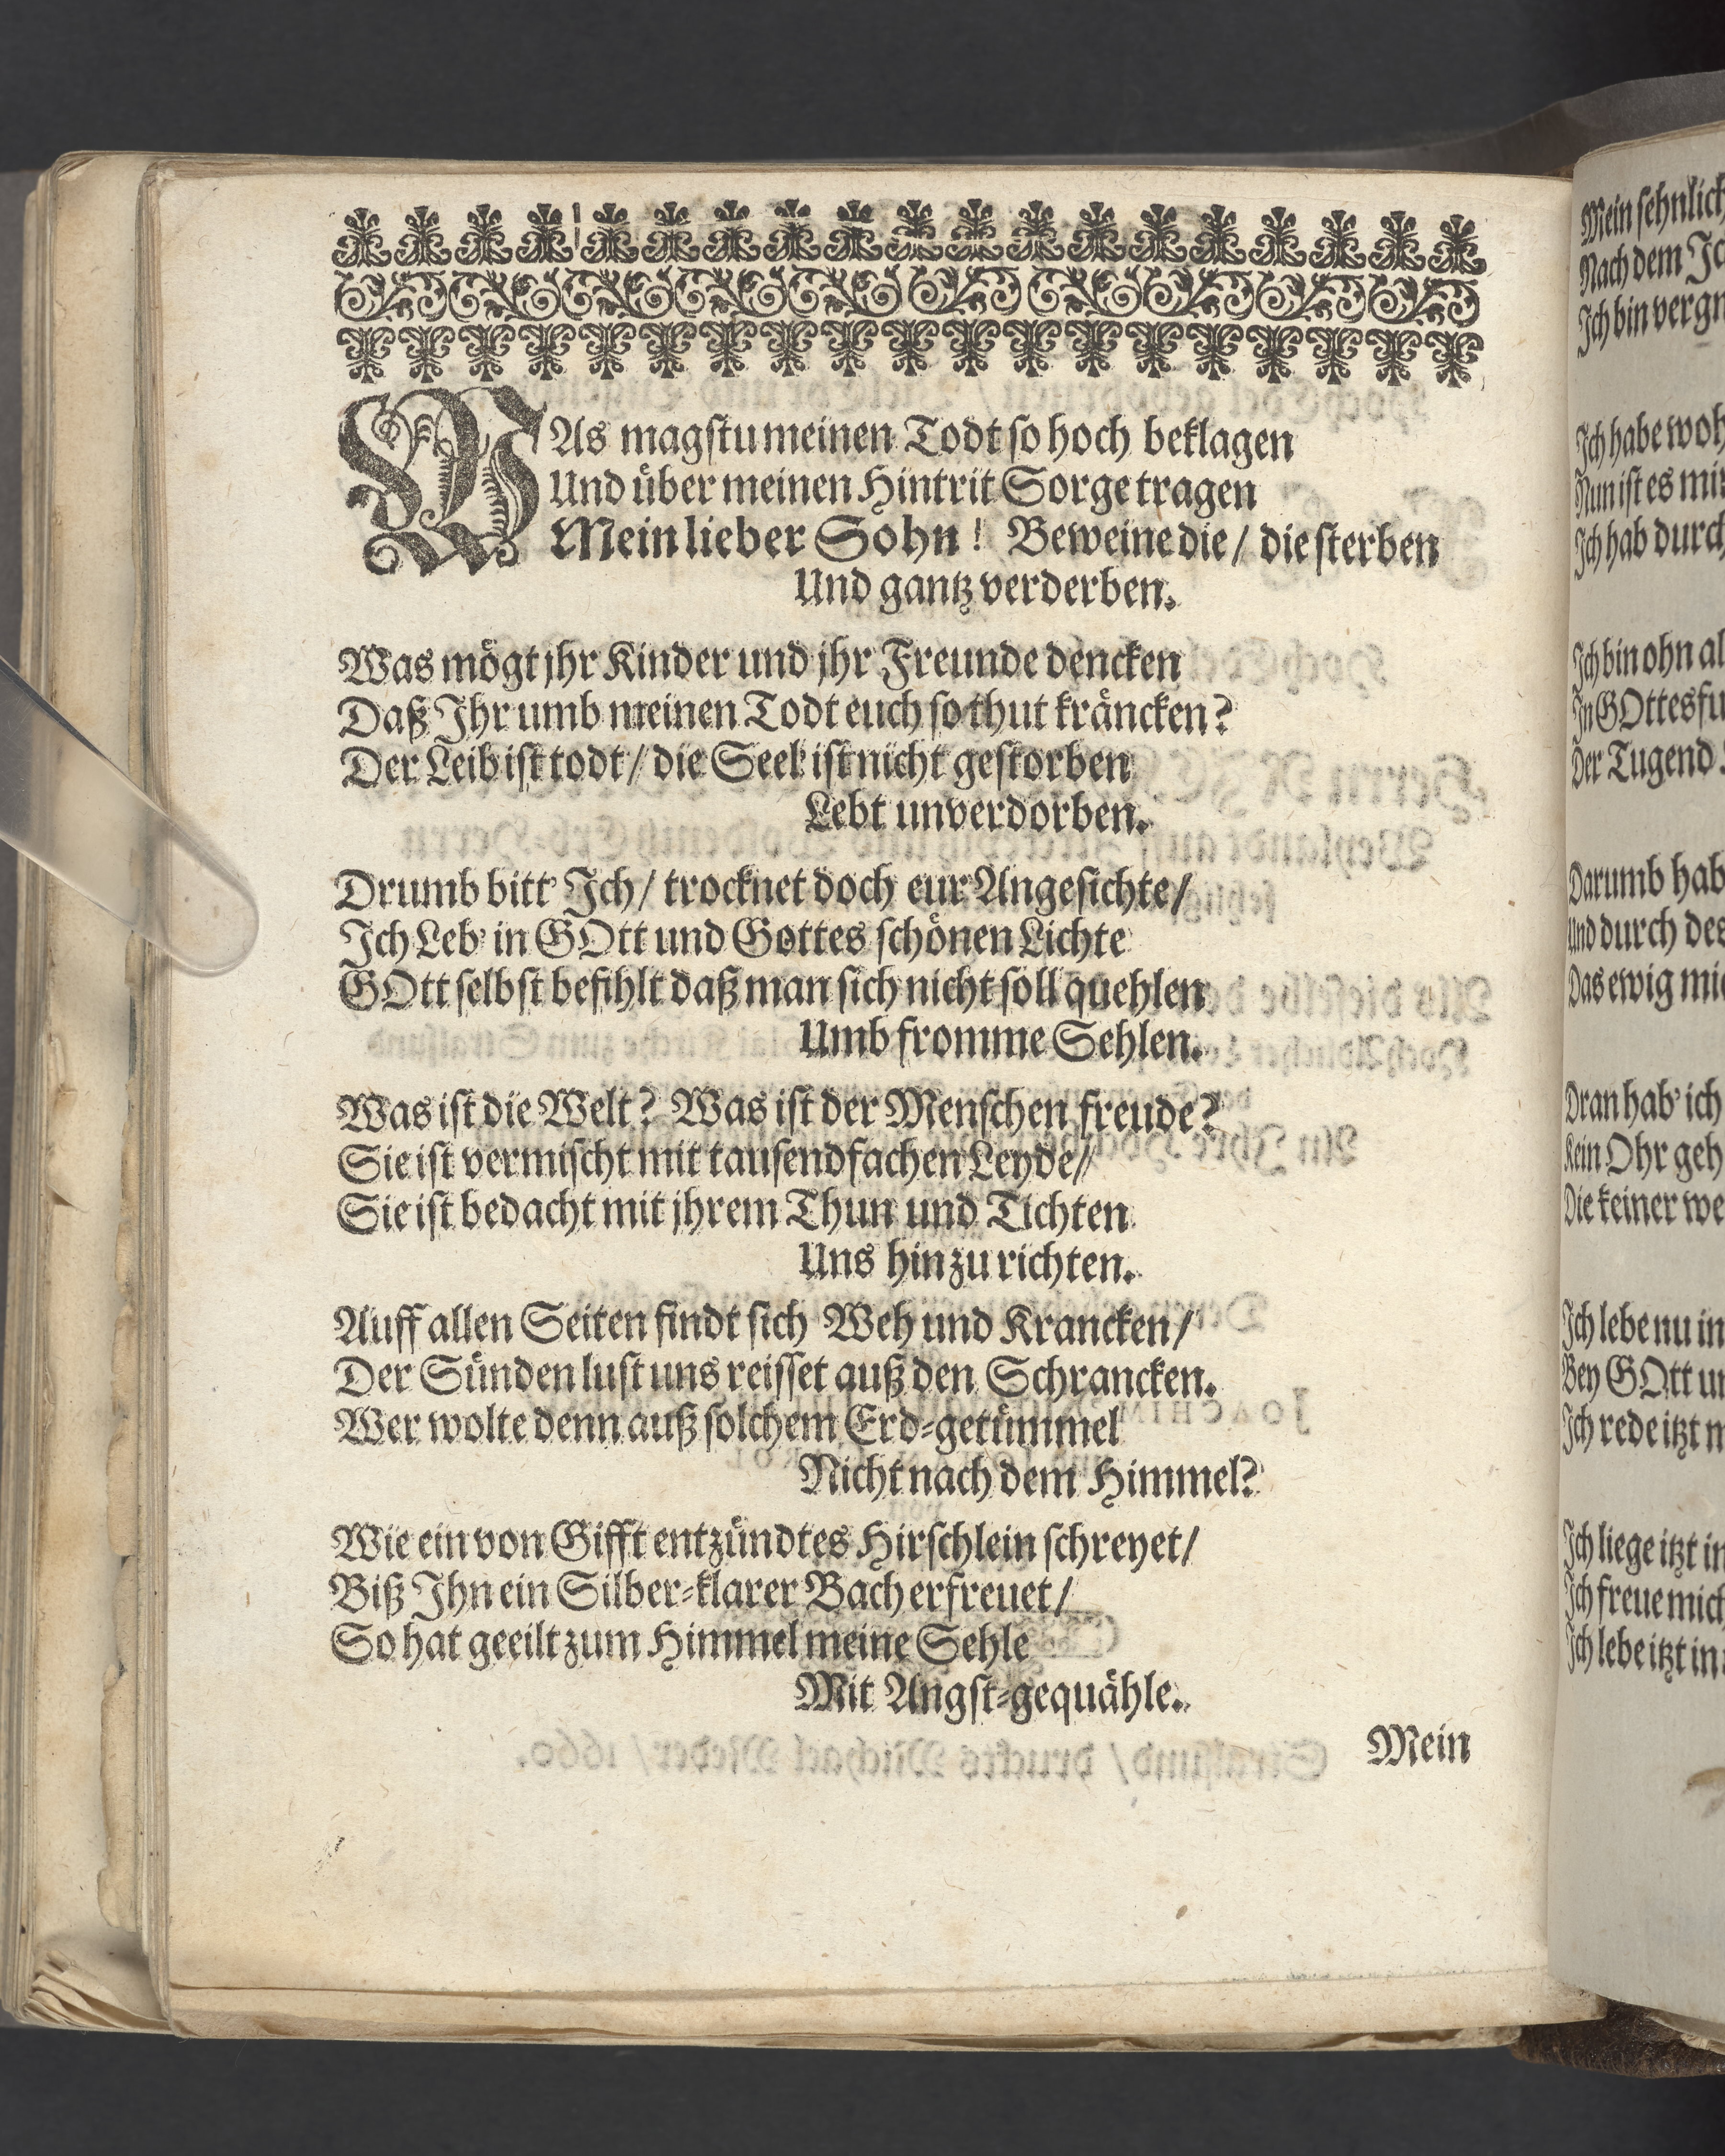 WAs magstu meinen Todt so hoch beklagen
Und über meinen Hintrit Sorge tragen
Mein lieber Sohn! Beweine die / die sterben
Und gantz verderben.
Was mögt jhr Kinder und jhr Freunde dencken
Daß Jhr umb meinen Todt euch so thut kräncken?
Der Leib ist todt / die Seel' ist nicht gestorben
Lebt unverdorben.
Drumb bitt' Jch / trocknet doch eur Angesichte /
Jch Leb' in GOtt und Gottes schönen Lichte
GOtt selbst befihlt daß man sich nicht soll quehlen
Umb fromme Sehlen.
Was ist die Welt? Was ist der Menschen freude?
Sie ist vermischt mit tausendfachen Leyde /
Sie ist bedacht mit jhrem Thun und Tichten
Uns hinzurichten.
Auff allen Seiten findt sich Weh und Krancken /
Der Sünden lust uns reisset auß den Schrancken.
Wer wolte denn auß solchem Erd-getümmel
Nicht nach dem Himmel?
Wie ein von Gifft entzündtes Hirschlein schreyet /
Biß Jhn ein Silber-klarer Bach erfreuet /
So hat geeilt zum Himmel meine Sehle
Mit Angst-gequähle.
Mein
Mein sehnlich
Nach dem
Jch bin
Jch habe
Nun ist es
Jch hab durch
Jch bin ohn
Jn GOttes
Der Tugend
Darumb
Und durch
Das ewig
Dran hab' ich
Kein Ohr
Die keiner
Jch lebe nu in
Bey GOtt
Jch rede itzt
Jch liege itzt
Jch freue mich
Jch lebe itzt in